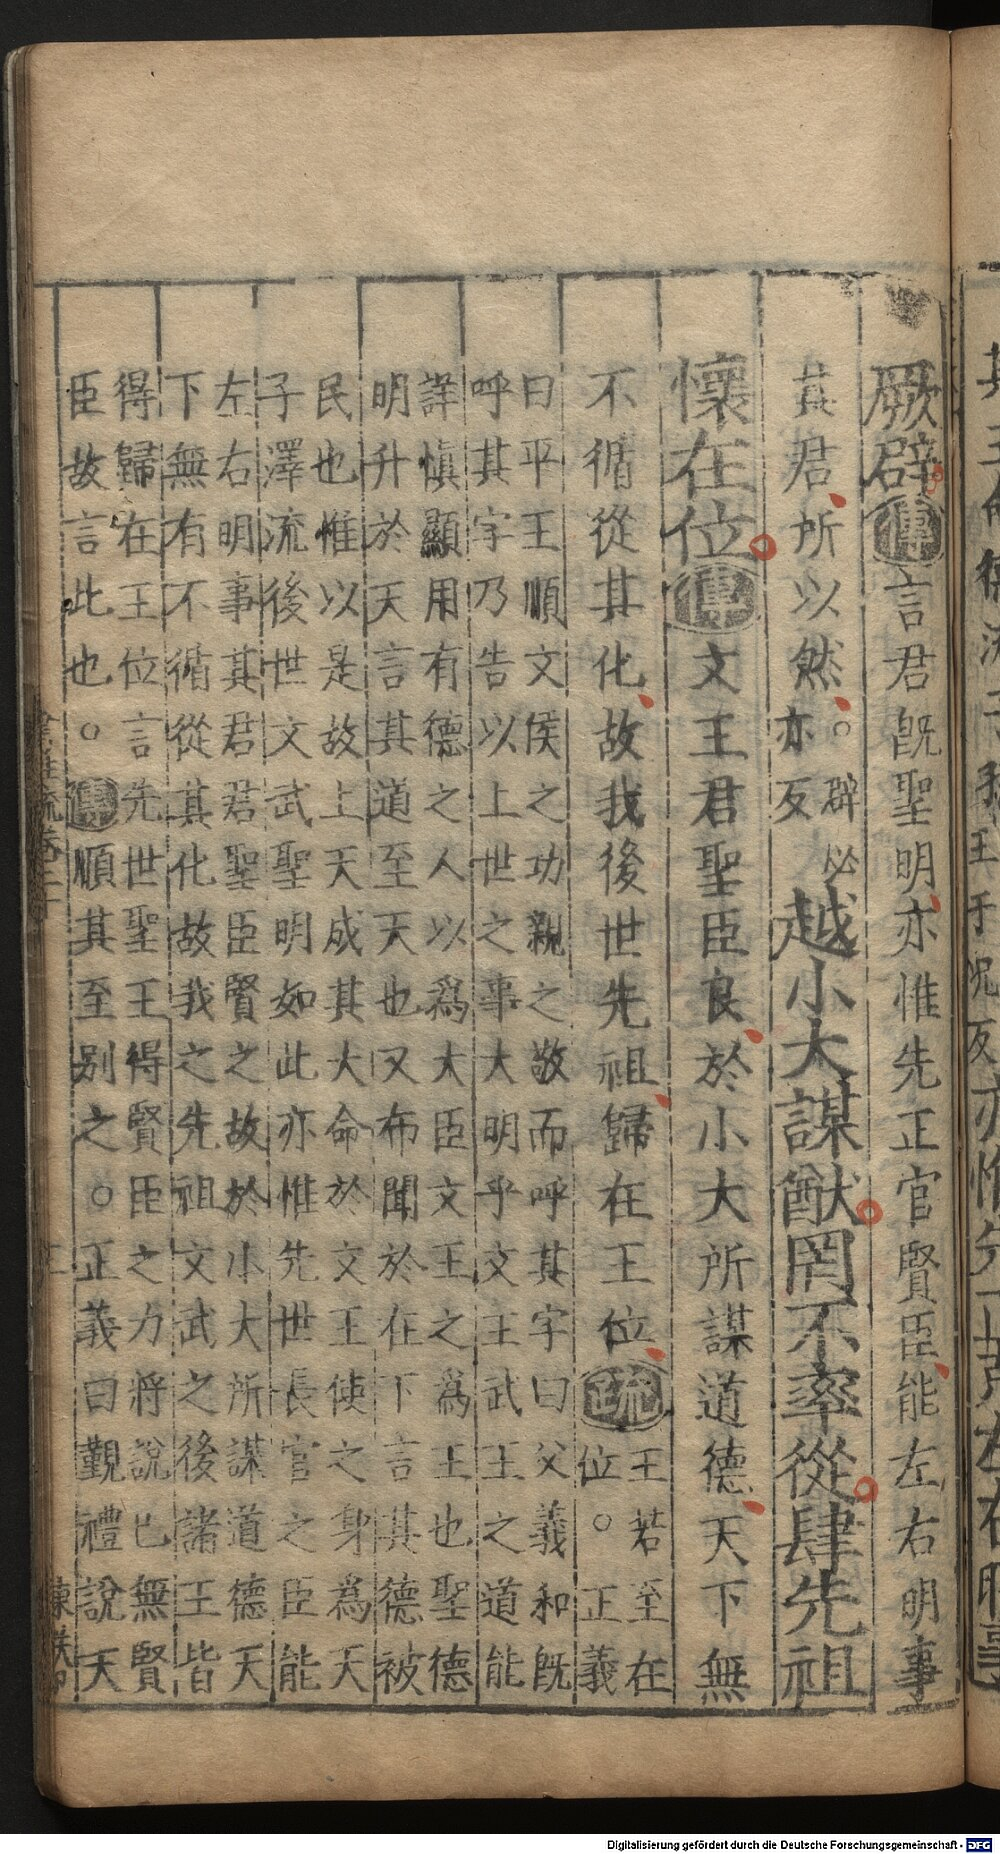 厥辟傳言君旣聖明亦惟先正官賢臣能左右明事
其君所以然○辟必亦反越小大謀猷罔不率從肆先祖
懷在位傳文王君聖臣良於小大所謀道德天下無
不循從其化故我後世先祖歸在王位疏王若至在位○正義
曰平王順文侯之功親之敬而呼其字曰父義和旣
呼其字乃告以上世之事大明乎文王武王之道能
詳慎顯用有德之人以爲大臣文王之爲王也聖德
明升於天言其道至天也又布聞於在下言其德被
民也惟以是故上天成其大命於文王使之身爲天
子澤流後世文武聖明如此亦惟先世長官之臣能
左右明事其君君聖臣賢之故於小大所謀道德天
下無有不循從其化故我之先祖文武之後諸王皆
得歸在王位言先世聖王得賢臣之力將說已無賢
臣故言此也○傳順其至别之○正義曰覲禮說天
Digitalisierung gefördert durch die Deutsche Forschungsgemeinschaft - DFG